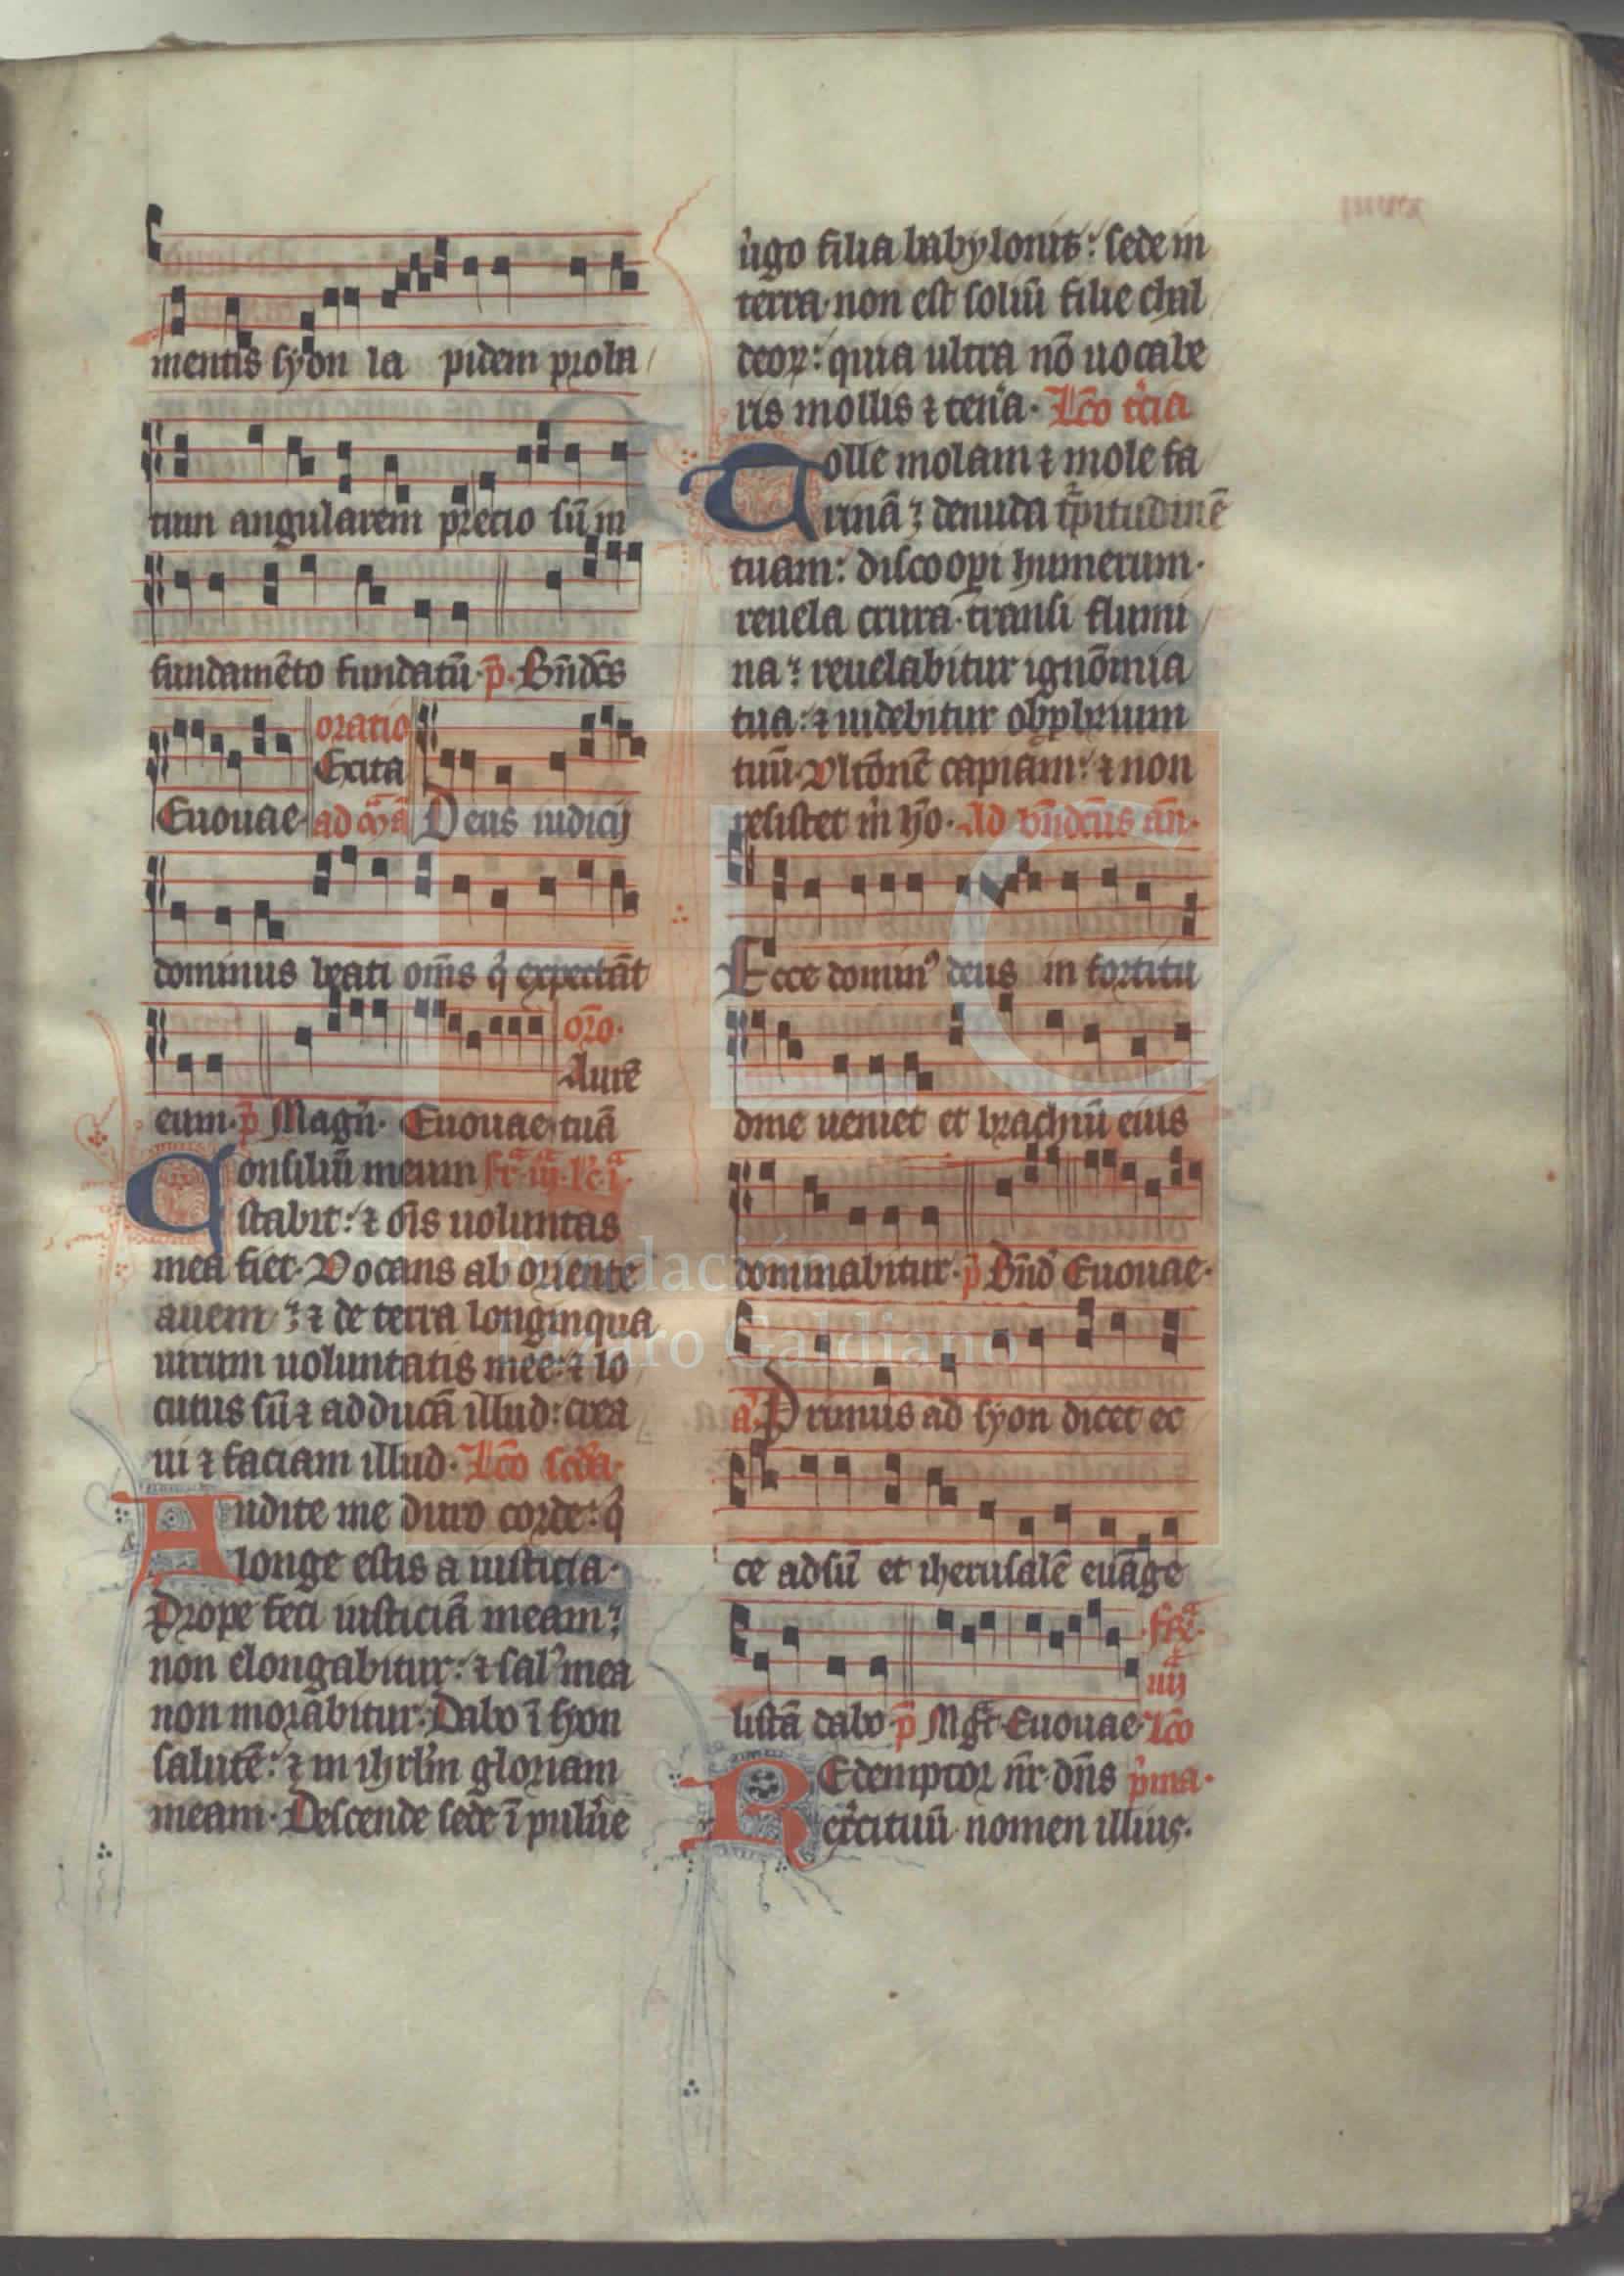 mentis syon la pidem proba
tum angularem precio sũ in
fundamẽto fundatũ. p̃. Bñdc̃s
oratio
Excita
Euouae. ad m̃a Deus iudicij
dominus beati om̃s q̓ expectãt
or̃o.
Aurẽ
eum. p̃ Magñ. Euouae. tuã
Consiliũ meum fr̃a. iij. lc̃. i.
stabit: ⁊ õis uoluntas
mea fiet. Vocans ab oriente
auem: ⁊ de terra longinqua
uirum uoluntatis mee: ⁊ lo
cutus sũ ⁊ adducã illud: crea
ui ⁊ faciam illud. Lc̃o scd̃a.
Audite me duro corde: q̓
longe estis a iusticia.
Prope feci iusticiã meam:
non elongabitur: ⁊ sal᷒ mea
non morabitur. Dabo ĩ syon
salutẽ: ⁊ in ihrl̃m gloriam
meam. Descende sede ĩ puluẽ
u̓go filia babylonis: sede in
terra. non est soliũ filie chal
deoꝝ: quia ultra nõ uocabe
ris mollis ⁊ ten̓a. Lc̃o t̓cia
Tolle molam ⁊ mole fa
rinã: denuda t̃pitudinẽ
tuam: discoop̓i humerum.
reuela crura. transi flumi
na: reuelabitur ignõmia
tua: ⁊ uidebitur obp̃brium
tuũ. Vltõnẽ capiam: ⁊ non
resistet m̓ hõ. Ad bñdc̃us añ.
Ecce domin᷒ deus in fortitu
dine ueniet et brachiũ eius
dominabitur. p̃ Bñd̓ Euouae.
a᷒. Primus ad syon dicet ec
ce adsũ et iherusalẽ euãge
listã dabo. p̃ Mgr̃. Euouae. Lc̃o
fr̃e.
iiij
Redemptor nr̃. dñs p̓ma.
ex̓cituũ nomen illius.
Fundación
Lázaro Galdiano